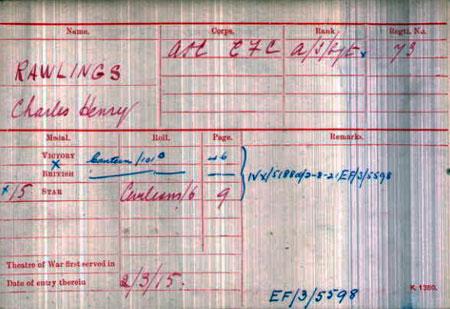 Name. Corps. Rank. Regtl. No.
ASC EFC A/S/Sjt x 73
RAWLINGS
Charles Henry
Medal. Roll. Page. Remarks.
VICTORY Canteen/101 B 46
x
BRITISH
IVX/5188 2-8-21 EF/3/5598
x 15 STAR 6 9
Theatre of War first served in
Date of entry therein 2/3/15.
EF/3/5598
K. 1380.